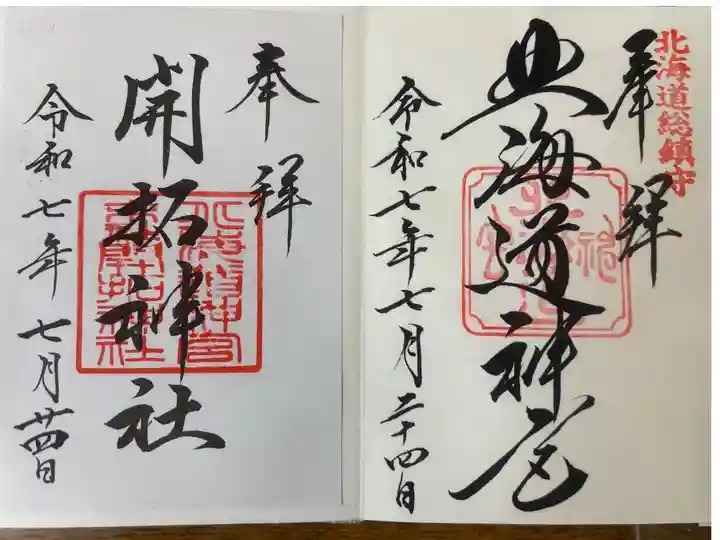 北海道総鎮守
奉拝
北海道神宮
令和七年七月二十四日
奉拝
開拓神社
北海道神宮
令和七年七月廿四日